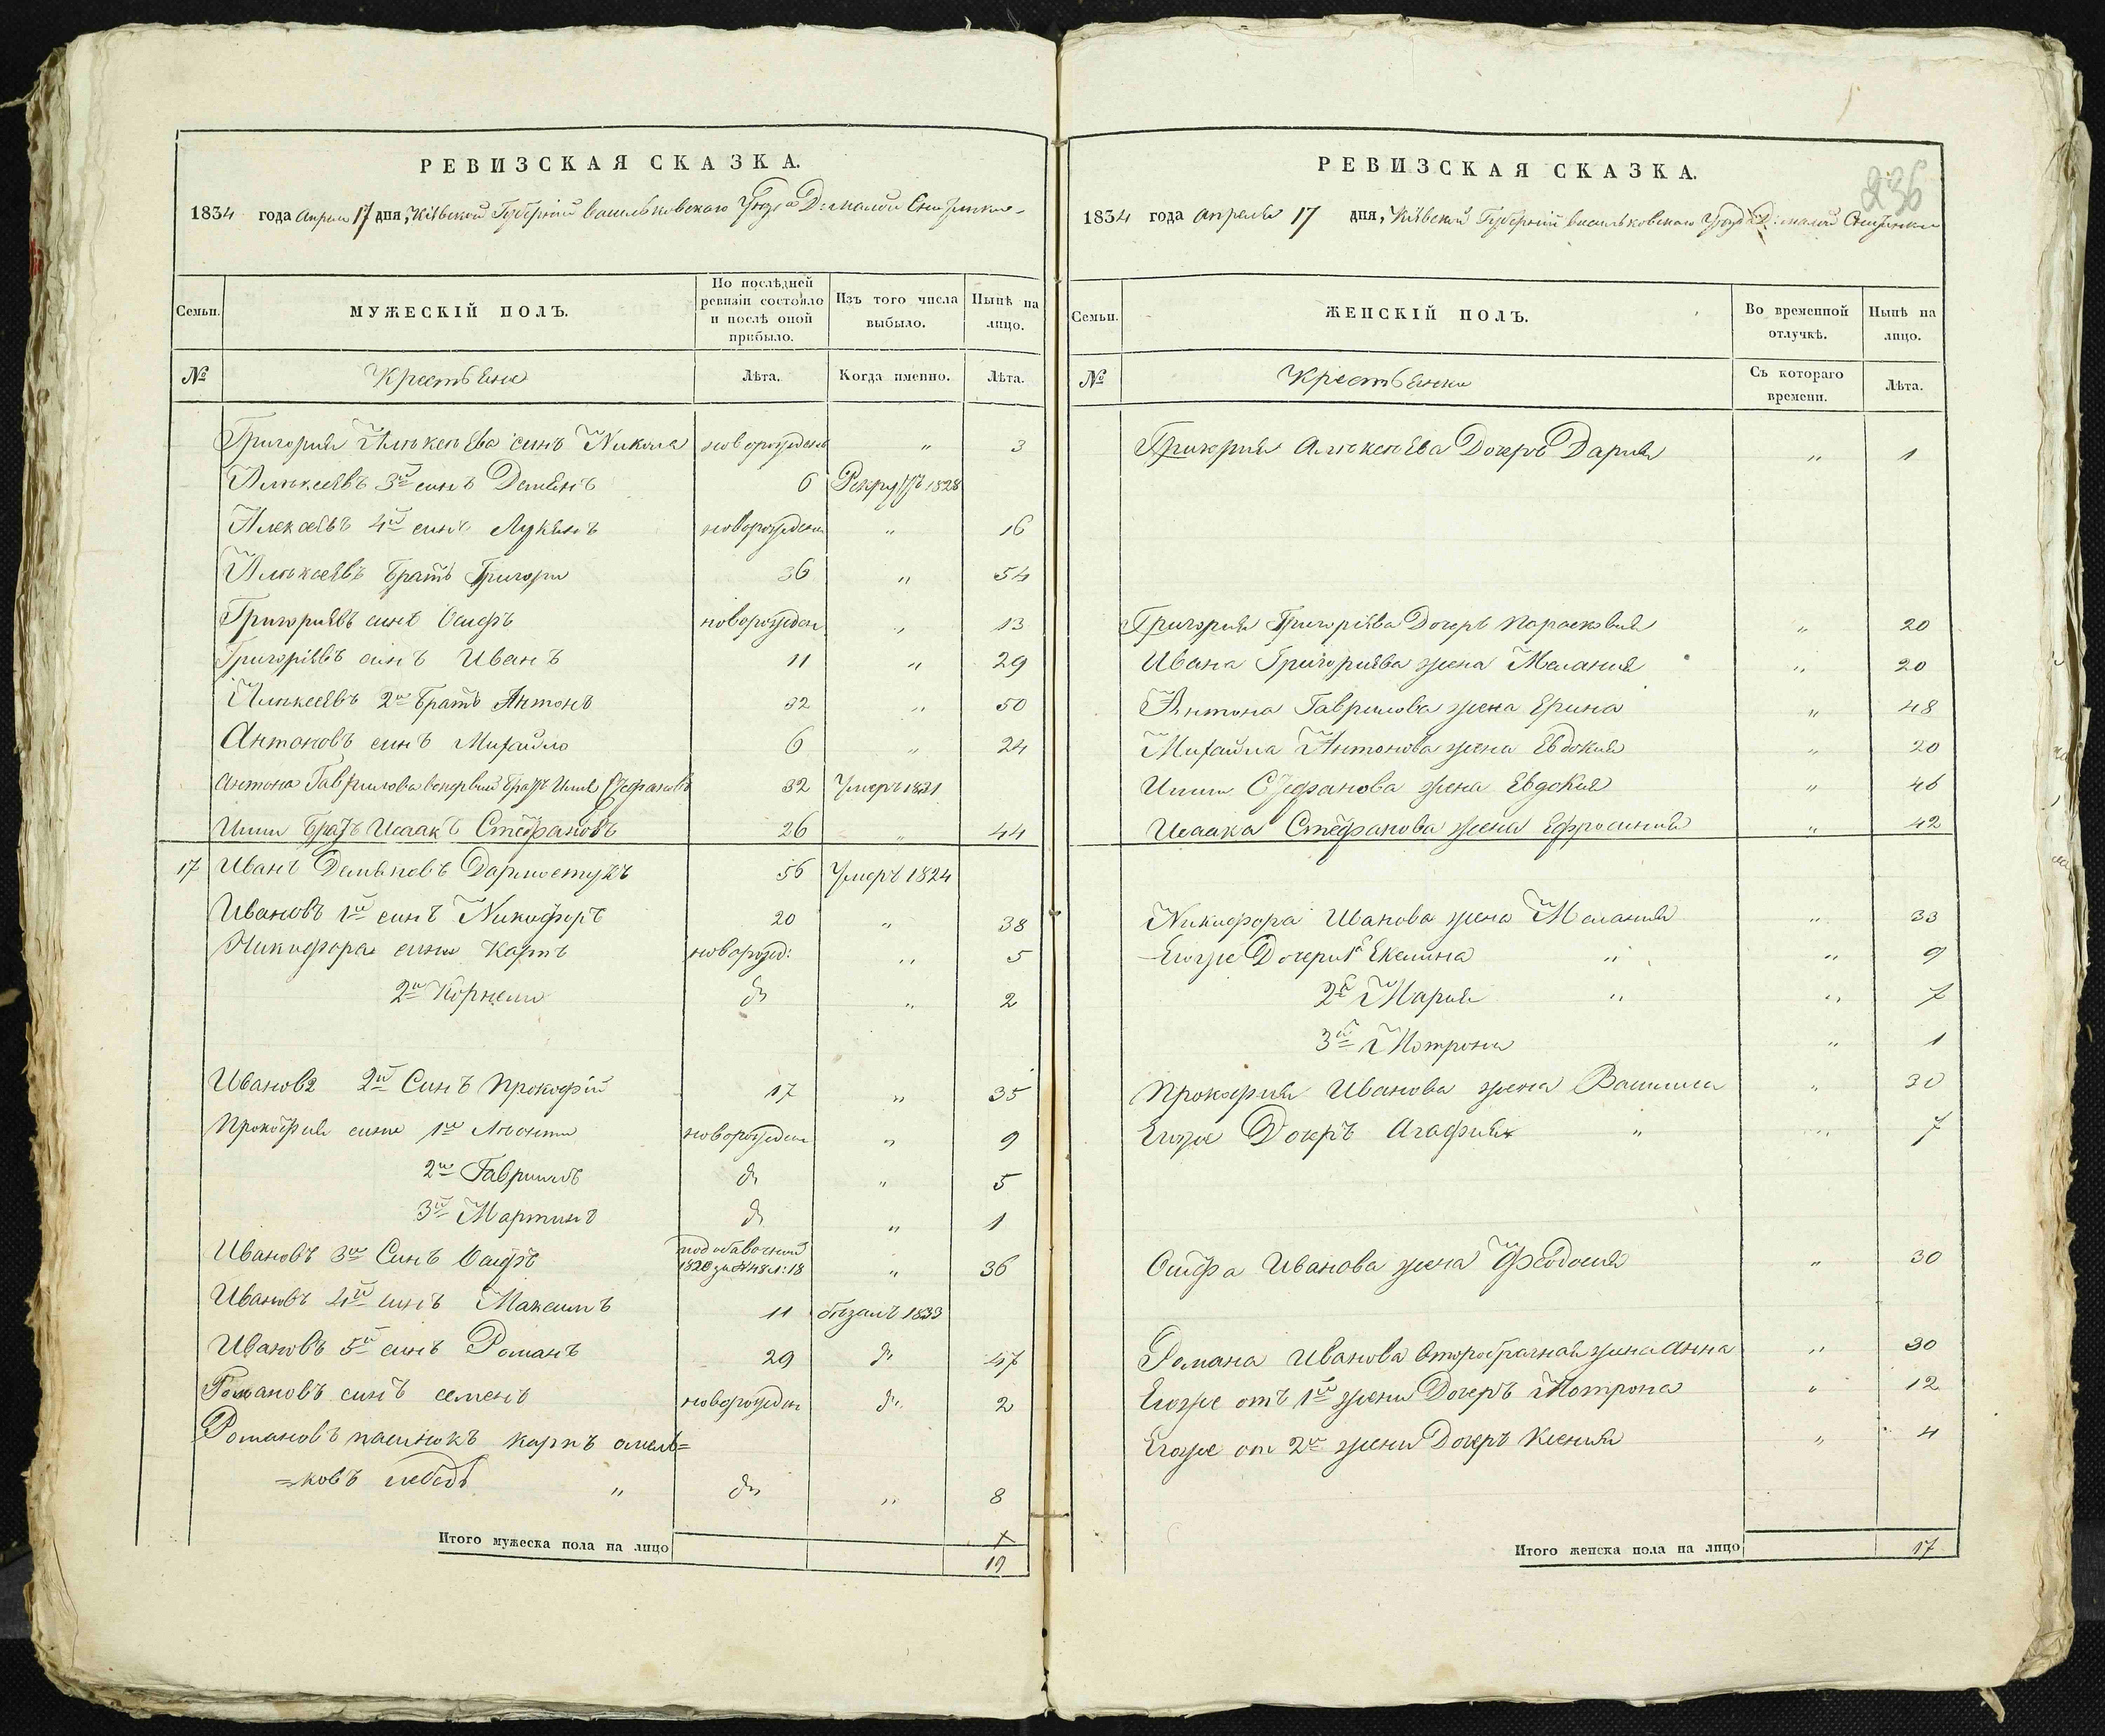 РЕВИЗСКАЯ СКАЗКА.
1834 года Апреля 17 дня, Кіевской Губерніи Васильковскаго Уезда Д: малой
Семьи.
МУЖЕСКІЙ ПОЛЪ.
По послѣдней ревизіи состояло и послѣ оной прибыло.
Изъ того числа выбыло.
Нынѣ на лицо.
№
Крестьяне
Лѣта.
Когда именно.
Лѣта.
Григория Алексеева синъ Никола новорожденъ " 3
Алексеевъ 3й синъ Демянъ 6 Рекрутъ 1828
Алексеевъ 4й синъ Лукянъ новорожден " 16
Алексеевъ братъ Григори 36 " 54
Григориевъ синъ Осифъ новорожден " 13
Григоріевъ синъ Иванъ 11 " 29
Алексеевъ 2й братъ Антонъ 32 " 50
Антоновъ синъ Михайло 6 " 24
Антона Гаврилова братъ Стефановъ 32 Умеръ 1831
братъ Исаакъ Стефановъ 26 " 44
17 Иванъ Демяновъ 56 Умеръ 1824
Ивановъ 1й синъ Никифоръ 20 " 38
Никифора сини Карпъ новорожд: " 5
2й Корнели д " 2
Ивановъ 2й Синъ Прокофій 17 " 35
Прокофия сини 1й Леонти новорожден " 9
2й Гаврилъ д " 5
3й Мартинъ д " 1
Ивановъ 3й Синъ Осифъ 1820 за № 48 л: 18 " 36
Ивановъ 4й синъ Максимъ 11 бежалъ 1833
Ивановъ 5й синъ Романъ 29 д 47
Романовъ синъ семенъ новорожден д " 2
Романовъ пасинокъ Карпъ омель=
=ковъ лебедь " д " 8
Итого мужеска пола на лицо
19
236
РЕВИЗСКАЯ СКАЗКА.
1834 года Апреля 17 дня, Кіевской Губерніи Васильковскаго Уезда Д: малой
Семьи.
ЖЕНСКІЙ ПОЛЪ.
Во временной отлучкѣ.
Нынѣ на лицо.
№
Крестьянки
Съ котораго времени.
Лѣта.
Григория Алексеева Дочеръ Дария " 1
Григория Григоріева Дочеръ Парасковия " 20
Ивана Григориева жена Мелания " 20
Антона Гаврилова жена Ерина " 48
Михайла Антонова жена Евдокия " 20
Стефанова жена Евдокия " 46
Исаака Стефанова жена Ефросиния " 42
Никифора Иванова жена Мелания " 33
Егоже Дочери 1я " " 9
2я Мария " " 7
3я Мотрона " 1
Прокофия Иванова жена Василиса " 30
Егоже Дочеръ Агафия " " 7
Осифа Иванова жена Феодосия " 30
Романа Иванова второбрачная жена Анна " 30
Егоже отъ 1й жени Дочеръ Мотрона " 12
Егоже от 2й жени Дочеръ Ксения " 4
Итого женска пола на лицо 17